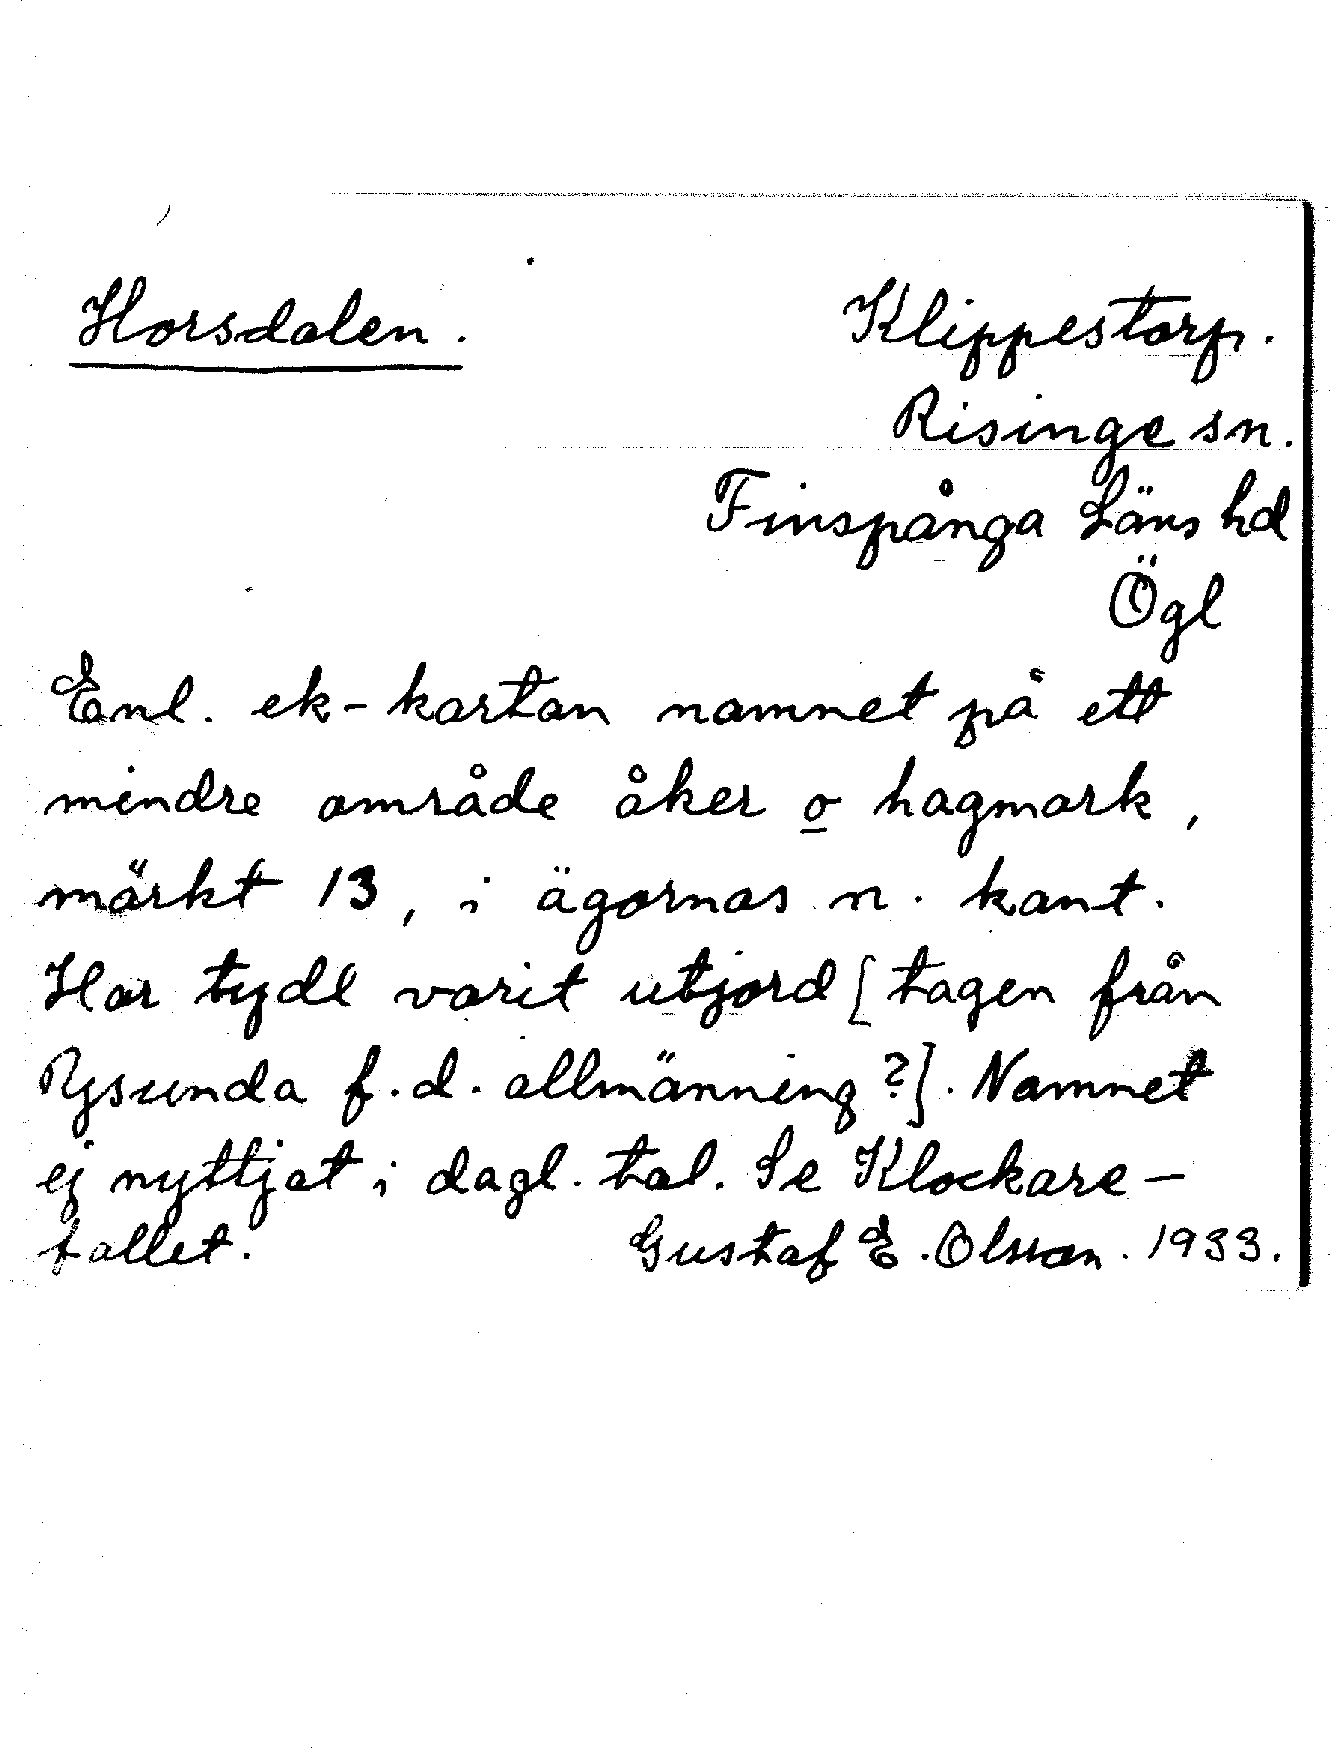 Horsdalen. Klippestorp.
Risinge sn.
Finspånga Läns hd
Ögl
Enl. ek-kartan namnet på ett
mindre område åker o hagmark,
märkt 13, i ägornas n. kant.
Har tydl varit utjord [tagen från
Rysunda f.d. allmänning?]. Namnet
ej nyttjat i dagl. tal. Se Klockare-
fallet. Gustaf E. Olsson. 1933.